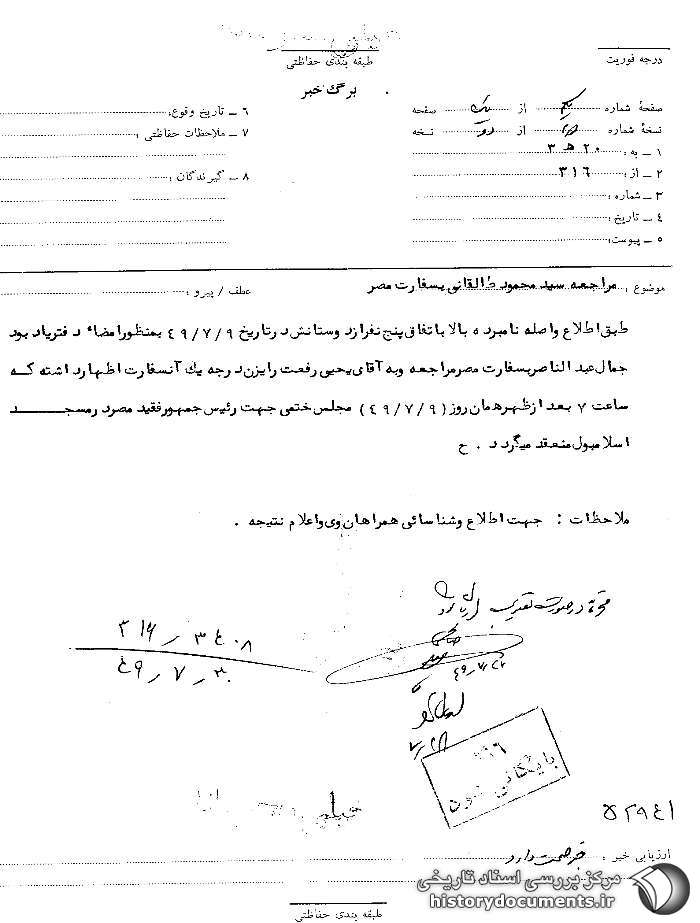 درجه فوریت
طبقه بندی حفاظتی
برگ خبر
صفحهٔ شماره یکم از یک صفحه
نسخهٔ شماره از دو نسخه
۱ ـ به : ۲۰ ﻫ ۳
۲ ـ از : ۳۱۶
۳ ـ شماره :
۴ ـ تاریخ :
۵ ـ پیوست:
۶ ـ تاریخ وقوع:
۷ ـ ملاحظات حفاظتی :
۸ ـ گیرندگان :
موضوع : مراجعه سید محمود طالقانی بسفارت مصر
عطف / پیرو :
طبق اطلاع واصله نامبرده بالا باتفاق پنج نفر از دوستانش در تاریخ ۴۹/۷/۹ بمنظور امضاء دفتر یاد بود
جمال عبدالناصر بسفارت مصر مراجعه وبه آقای یحیی رفعت رایزن درجه یک آنسفارت اظهار داشته که
ساعت ۷ بعد از ظهر همان روز (۴۹/۷/۹) مجلس ختمی جهت رئیس جمهور فقید مصر در مسجد
اسلامبول منعقد میگردد . ح
ملاحظات : جهت اطلاع وشناسائی همراهان وی و اعلام نتیجه .
محترماً در صورت تصویب
۳۱۶ / ۳۴۰۸
۴۹ / ۷ / ۳۰
بایگانی شود
۵۲۹۴۱
خیلی محرمانه
ارزیابی خبر : صحت دارد
طبقه بندی حفاظتی
مرکز بررسی اسناد تاریخی
historydocuments.ir